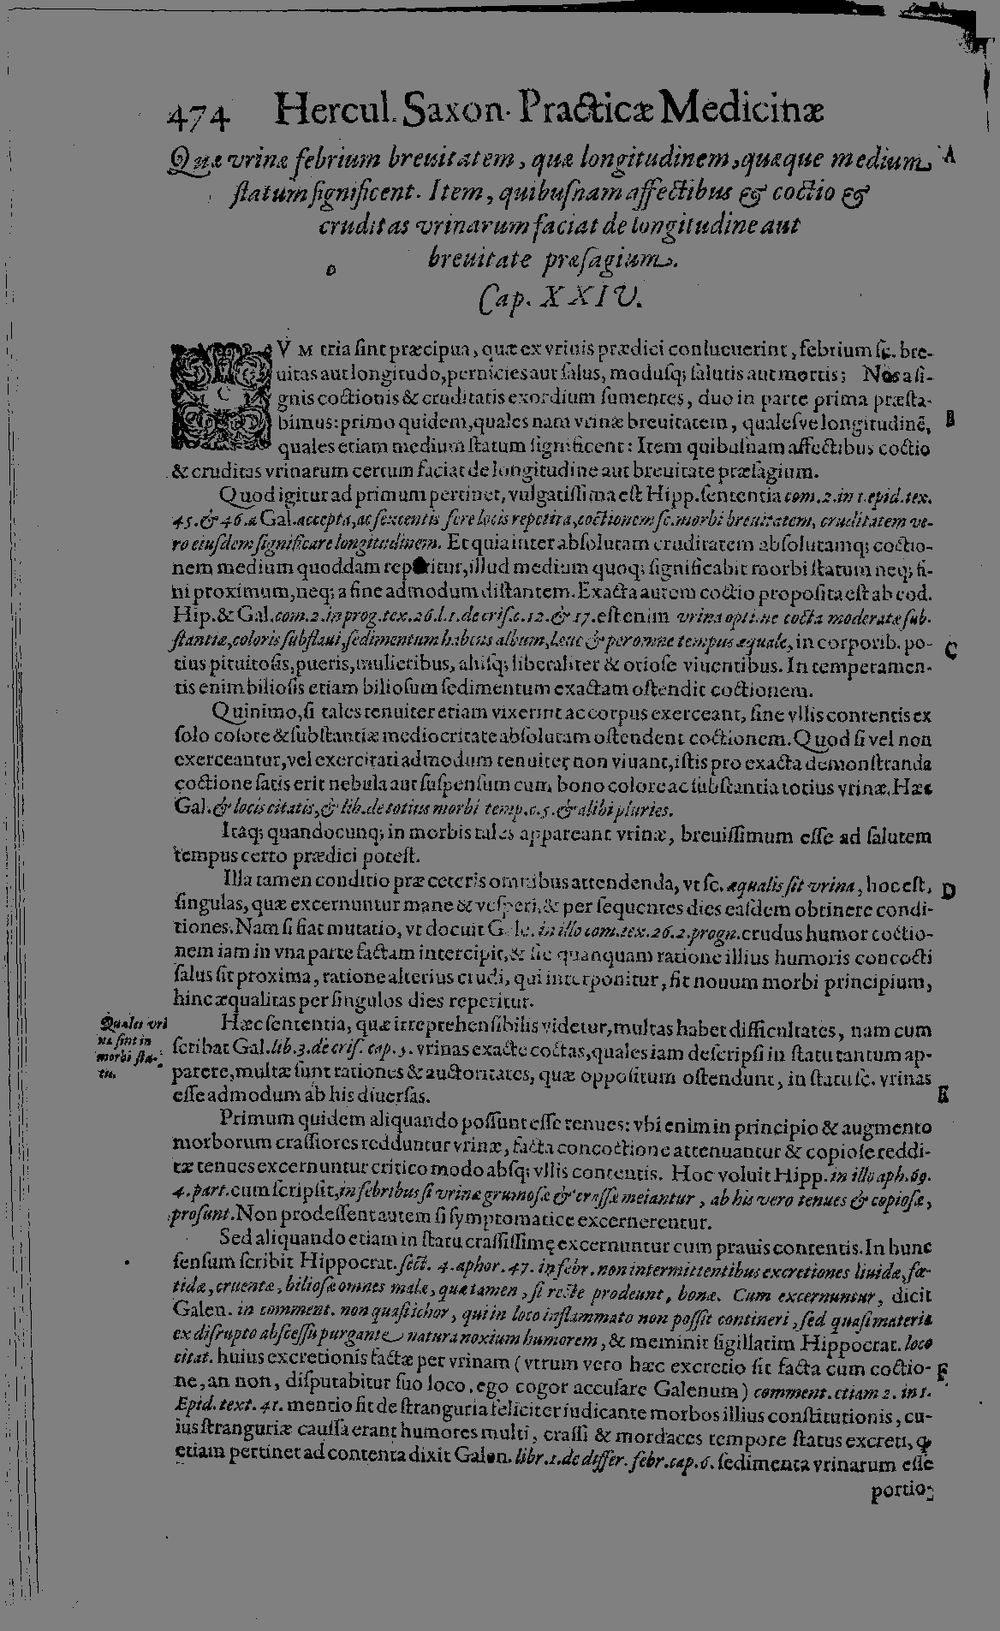 474 Hercul. Saxon. Practicæ Medicinæ
Quæ vrinæ febrium breuitatem, quæ longitudinem, quæque medium A
ſtatum ſignificent. Item, quibuſnam affectibus & coctio &
cruditas vrinarum faciat de longitudine aut
breuitate præſagium.
Cap. XXIV.
CVM tria ſint præcipua, quæ ex vrinis prædici conſueuerint, febrium ſc. bre-
uitas aut longitudo, pernicies aut ſalus, moduſq; ſalutis aut mortis; Nos a ſi-
gnis coctionis & cruditatis exordium ſumentes, duo in parte prima præſta-
bimus: primo quidem, quales nam vrinæ breuitatem, qualeſve longitudinẽ, B
quales etiam medium ſtatum ſignificent: Item quibuſnam affectibus coctio
& cruditas vrinarum certum faciat de longitudine aut breuitate præſagium.
Quod igitur ad primum pertinet, vulgatiſſima eſt Hipp. ſententia com. 2. in 1. epid. tex.
45. & 46. a Gal. accepta, ac ſexcentis fere locis repetita, coctionem ſc. morbi breuitatem, cruditatem ve-
ro eiuſdem ſignificare longitudinem. Et quia inter abſolutam cruditatem abſolutamq; coctio-
nem medium quoddam reperitur, illud medium quoq; ſignificabit morbi ſtatum neq; fi-
ni proximum, neq; a fine admodum diſtantem. Exacta autem coctio propoſita eſt ab eod.
Hip. & Gal. com. 2. in prog. tex. 26. l. 1. de criſ. c. 12. & 17. eſt enim vrina optime cocta moderatæ ſub-
ſtantiæ, coloris ſubflaui, ſedimentum habens album, leue & per omne tempus æquale, in corporib. po- C
tius pituitoſis, pueris, mulieribus, alijſq; liberaliter & otioſe viuentibus. In temperamen-
tis enim bilioſis etiam bilioſum ſedimentum exactam oſtendit coctionem.
Quinimo, ſi tales tenuiter etiam vixerint ac corpus exerceant, ſine vllis contentis ex
ſolo colore & ſubſtantiæ mediocritate abſolutam oſtendent coctionem. Quod ſi vel non
exerceantur, vel exercitati admodum tenuiter non viuant, iſtis pro exacta demonſtranda
coctione ſatis erit nebula aut ſuſpenſum cum bono colore ac ſubſtantia totius vrinæ. Hæc
Gal. & locis citatis, & lib. de totius morbi temp. c. 5. & alibi pluries.
Itaq; quandocunq; in morbis tales appareant vrinæ, breuiſſimum eſſe ad ſalutem
tempus certo prædici poteſt.
Illa tamen conditio præ ceteris omnibus attendenda, vt ſc. æqualis ſit vrina, hoc eſt, D
ſingulas, quæ excernuntur mane & veſperi, & per ſequentes dies eaſdem obtinere condi-
tiones. Nam ſi fiat mutatio, vt docuit Gale. in illo com. tex. 26. 2. progn. crudus humor coctio-
nem iam in vna parte factam intercipit, & ſic quanquam ratione illius humoris concocti
ſalus ſit proxima, ratione alterius crudi, qui interponitur, fit nouum morbi principium,
hinc æqualitas per ſingulos dies reperitur.
Quales vri
næ ſint in
morbi ſta-
tu.
Hæc ſententia, quæ irreprehenſibilis videtur, multas habet difficultates, nam cum
ſcribat Gal. lib. 3. de criſ. cap. 5. vrinas exacte coctas, quales iam deſcripſi in ſtatu tantum ap-
parere, multæ ſunt rationes & auctoritates, quæ oppoſitum oſtendunt, in ſtatu ſc. vrinas
eſſe admodum ab his diuerſas. E
Primum quidem aliquando poſſunt eſſe tenues: vbi enim in principio & augmento
morborum craſſiores redduntur vrinæ, facta concoctione attenuantur & copioſe reddi-
tæ tenues excernuntur critico modo abſq; vllis contentis. Hoc voluit Hipp. in illo aph. 69.
4. part. cum ſcripſit, in febribus ſi vrinæ grumoſæ & craſſæ meiantur, ab his vero tenues & copioſæ,
proſunt. Non prodeſſent autem ſi ſymptomatice excernerentur.
Sed aliquando etiam in ſtatu craſſiſſimę excernuntur cum prauis contentis. In hunc
ſenſum ſcribit Hippocrat. ſect. 4. aphor. 47. in febr. non intermittentibus excretiones liuidæ, fœ-
tidæ, cruentæ, bilioſæ omnes malæ, quæ tamen, ſi recte prodeunt, bonæ. Cum excernuntur, dicit
Galen. in comment. non quaſi ichor, qui in loco inflammato non poſſit contineri, ſed quaſi materia
ex diſrupto abſceſſu purgante natura noxium humorem, & meminit ſigillatim Hippocrat. loco
citat. huius excretionis factæ per vrinam (vtrum vero hæc excretio ſit facta cum coctio- F
ne, an non, diſputabitur ſuo loco. ego cogor accuſare Galenum) comment. etiam 2. in 1.
Epid. text. 41. mentio fit de ſtranguria feliciter iudicante morbos illius conſtitutionis, cu-
ius ſtranguriæ cauſſa erant humores multi, craſſi & mordaces tempore ſtatus excreti, q̃
etiam pertinet ad contenta dixit Galen. libr. 1. de differ. febr. cap. 6. ſedimenta vrinarum eſſe
portio-